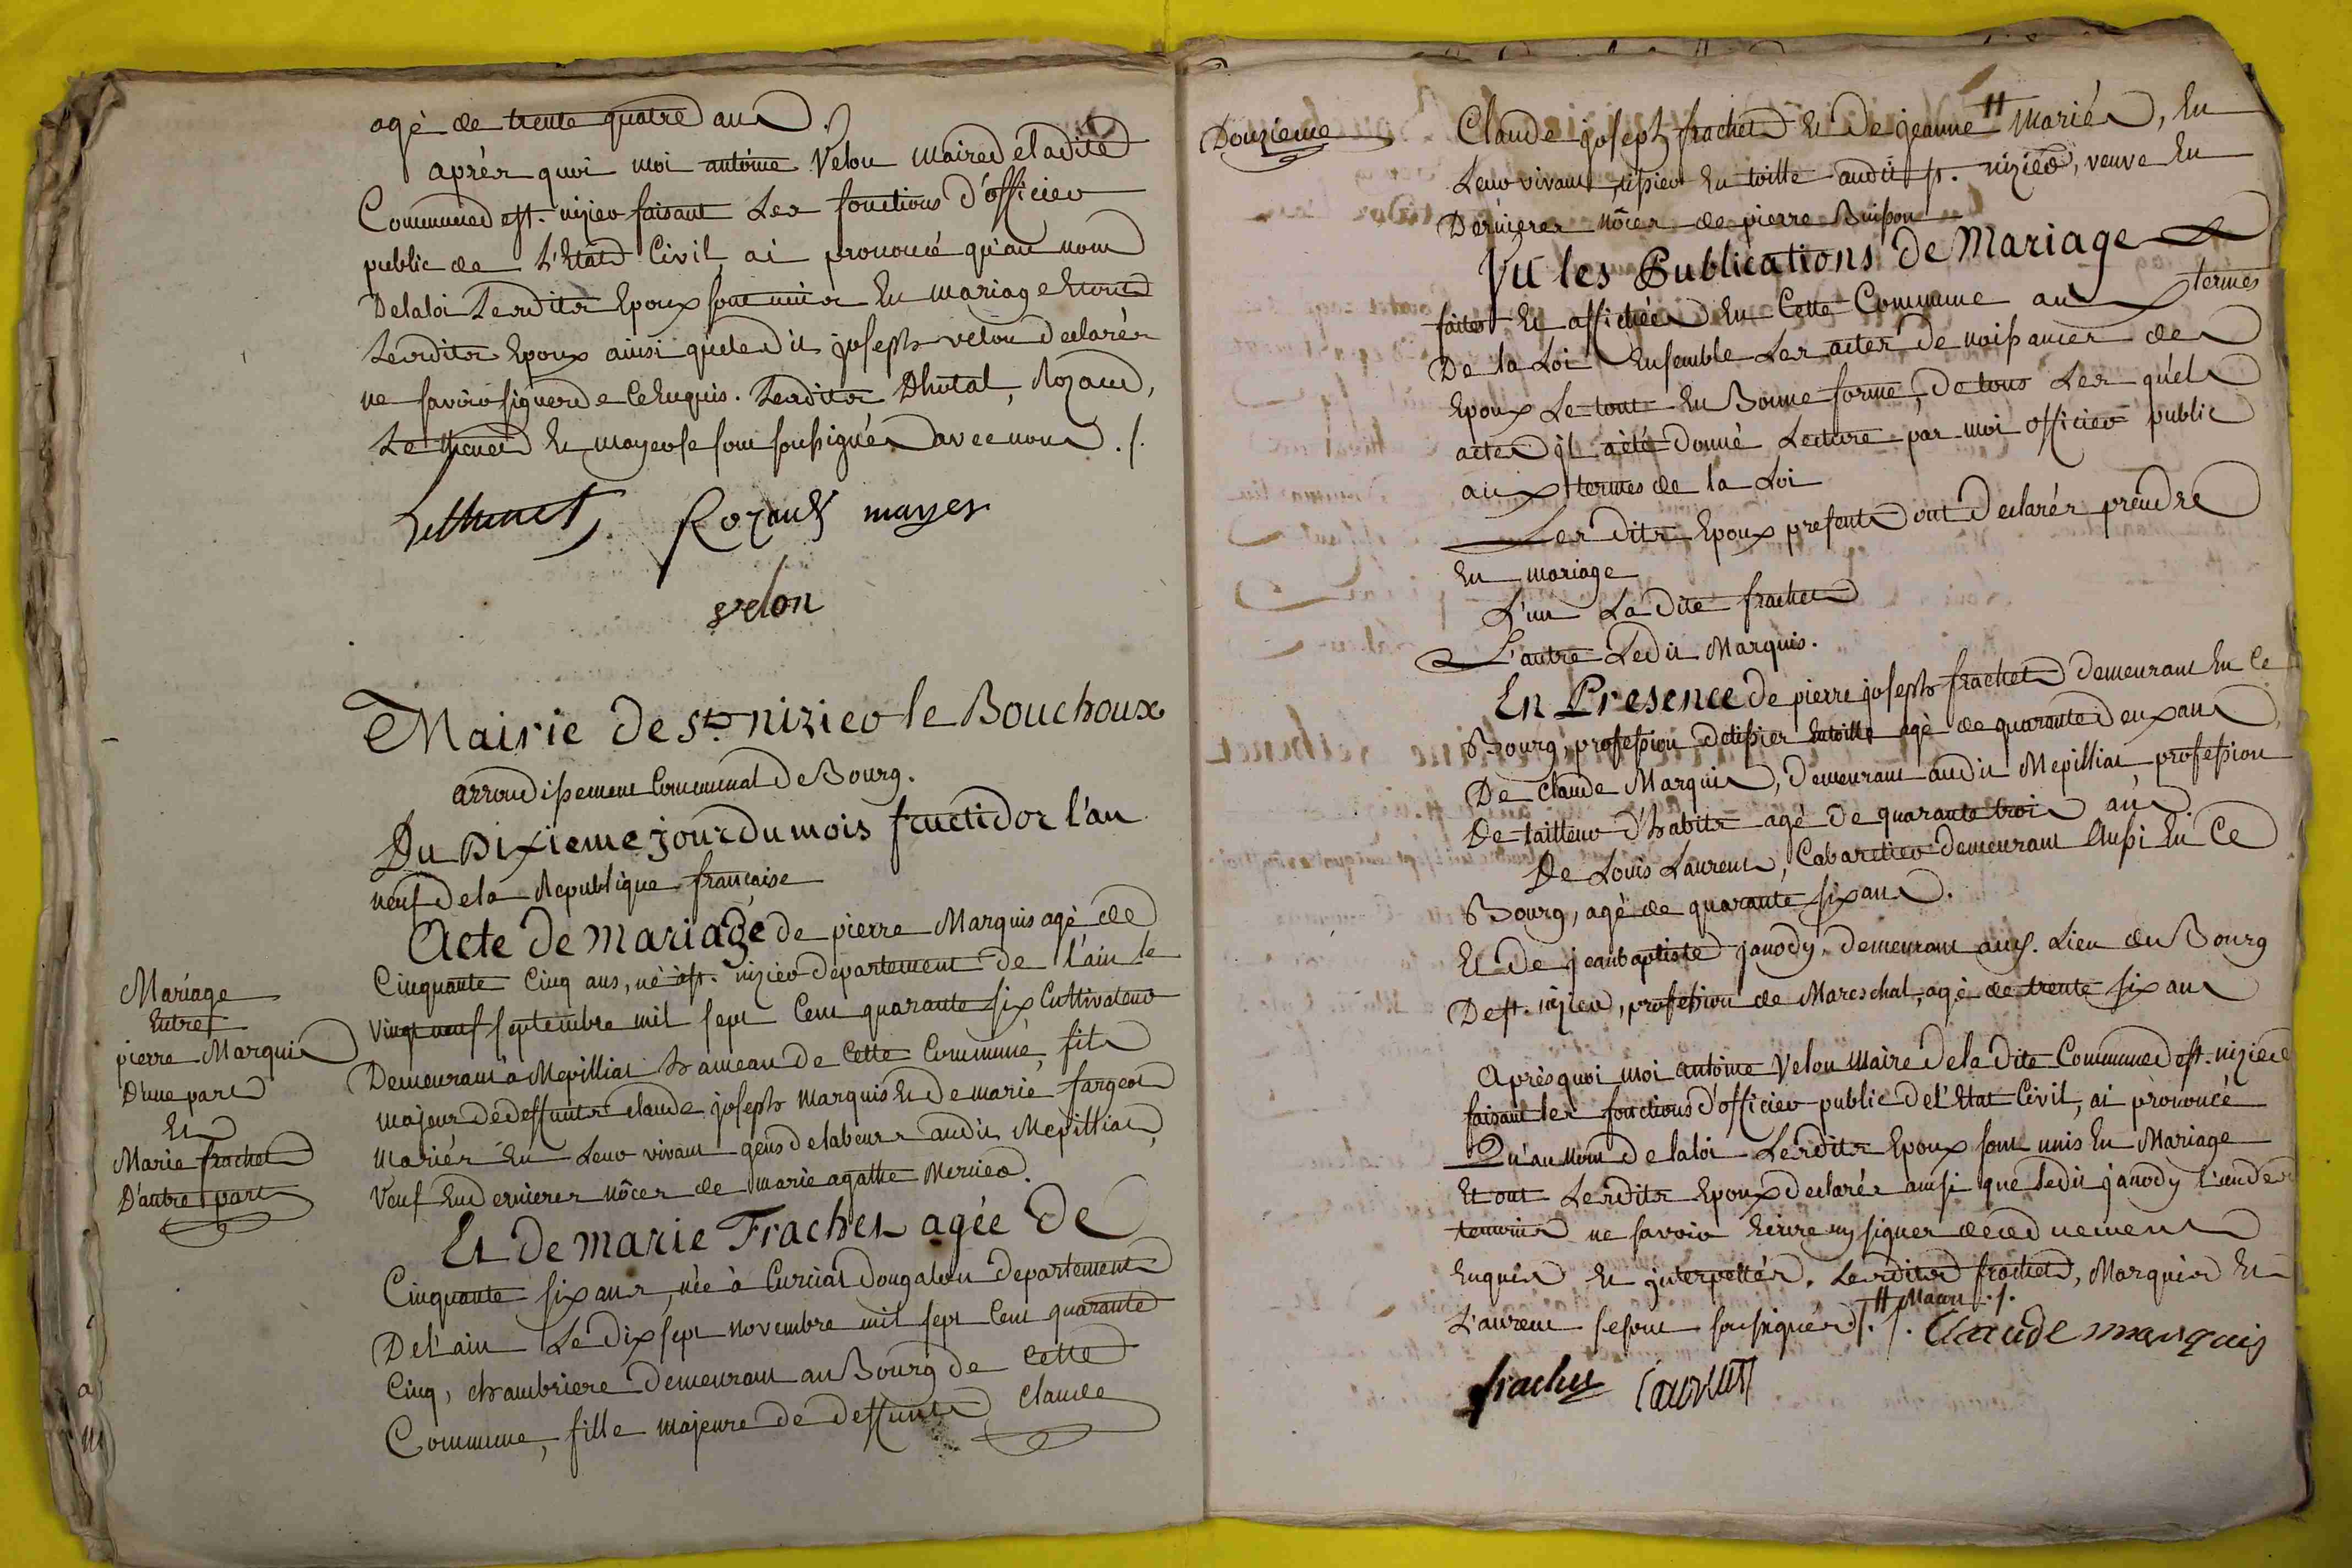 agé de trente quatre ans.
après quoi moi antoine Velon maire de la dite
Commune de st. nizier faisant Les fonctions d'officier
public de L'Etat Civil, ai prononcé qu'au nom
De la loi Lesdits Epoux sont unis En mariage Et ont
Lesdits Epoux ainsi que le dit joseph velon declarés
ne savoir signer de ce Enquis. Lesdits Dhutal, Rozand,
Le thenet Et mayer se sont soussignés avec nous ./.
Lethenet Rozand mayer
velon
Mairie de St. nizier le Bouchoux
arrondissement Communal de Bourg.
Du Dixieme jour du mois fructidor l'an
neuf de la Republique française
Mariage
Entre
pierre Marquis
D'une part
Et
Marie frachet
D'autre part
Acte de mariage de pierre Marquis agé de
Cinquante Cinq ans, né à st. nizier departement de l'ain le
vingt neuf septembre mil sept Cent quarante six Cultivateur
Demeurant à Mepilliat hameau de Cette Commune, fils
majeur de deffunts claude joseph Marquis Et de marie fargeot
mariés En Leur vivant gens de labeurs audit Mepilliat,
Veuf En dernieres nôces de marie agathe Mercier.
Et de marie Frachet agée de
Cinquante six ans, née à Curciat dongalon departement
De l'ain Le dix sept novembre mil sept Cent quarante
Cinq, chambriere demeurant au Bourg de Cette
Commune, fille majeure de deffunts Claude
Douzieme
Claude joseph frachet Et de jeanne # Mariés, En
Leur vivant, tissier En toille audit st. nizier, veuve En
Dernieres nôces de pierre Buisson
Vu les Publications de Mariage
faites Et affichées En Cette Commune aux termes
De la Loi Ensemble Les actes de naissances des
Epoux Le tout En Bonne forme, De tous Les quels
actes il a été donné Lecture par moi officier public
aux termes de la Loi
Lesdits Epoux presents ont Declarés prendre
En mariage
L'un La dite frachet
L'autre Ledit Marquis.
En Presence de pierre joseph frachet demeurant En Ce
Bourg, profession de tissier En toille agé de quarante deux ans,
De claude Marquis, demeurant audit Mepilliat profession
De tailleur d'habits agé de quarante trois ans.
De Louis Laurent, Cabaretier demeurant aussi En Ce
Bourg, agé de quarante six ans.
Et de jean baptiste janody, demeurant aus. Lieu du Bourg
De st. nizier, profession de Mareschal, agé de trente six ans
Après quoi moi antoine Velon Maire de la dite Commune de st. nizier
faisant les fonctions d'officier public de l'Etat Civil, ai prononcé
Qu'au Nom de la loi Lesdits Epoux sont unis En Mariage
Et ont Lesdits Epoux declarés ainsi que ledit janody l'un des
temoins ne savoir Ecrire ny signer de ce duement
Enquis Et interpellés. Lesdits frachet, Marquis Et
Laurent se sont soussignés ./. # Macon ./.
Claude marquis
frachet Laurent